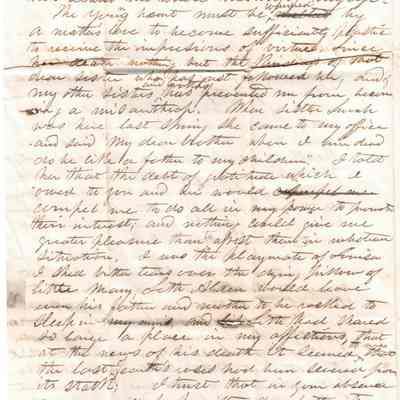 The young heart must be warmed by
a mothers love to become sufficiently plastic
to receive the impressions of virtue; since
her death nothing but the kindness of that
dear sister who has just followed her, and
my other sisters, has prevented me from becom
ing a misanthrop. When sister Sarah
was here last Spring she came to my office
and said My dear brother when I am dead
do be like a father to my children". I told
her that the debt of gratitude which I
owed to you and her would
compel me to do all in my power to promote
their interest; and nothing could give me
greater pleasure than assist them in whatever
situation. I was the playmate of
I shed bitter tears over the dying pillow of
little Mary. Seth Allen would leave
even his father and mother to be rocked to
sleep in my arms, and Seth had shared
so large a place in my affections, that
at the news of his death it seemed that
the last earths roses had been severed from
its stalk. I trust that in your absence